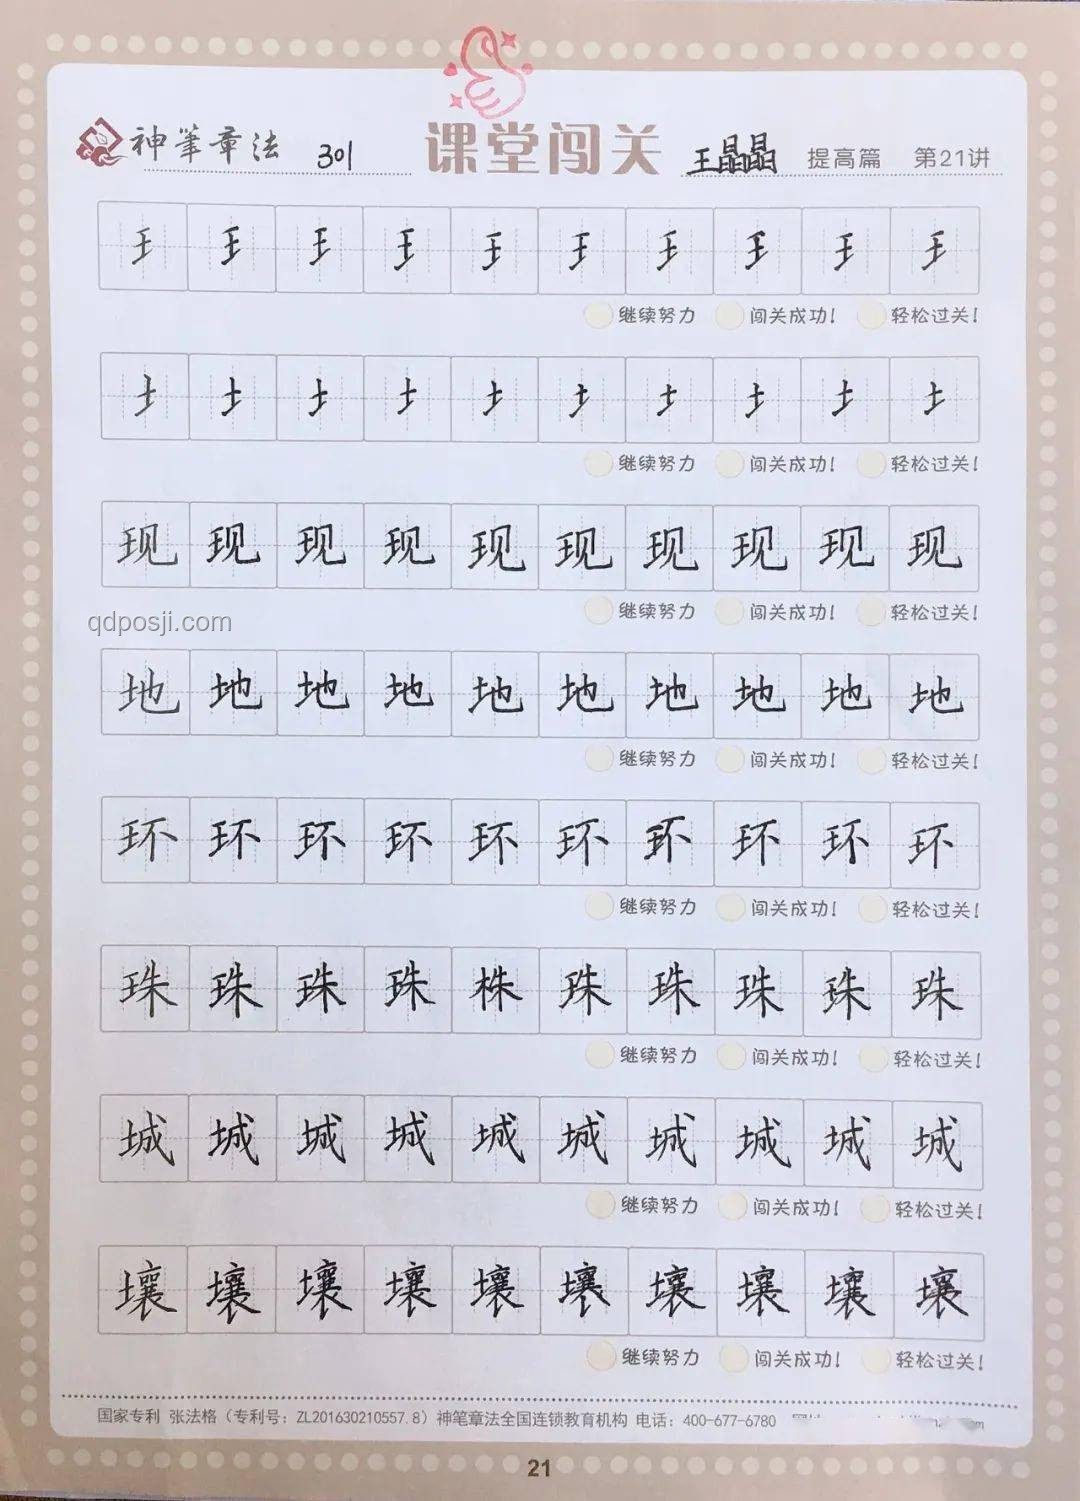 神筆章法 301 课堂闯关 王晶晶 提高篇 第21讲
王 王 王 王 王 王 王 王 王 王
继续努力 闯关成功! 轻松过关!
土 土 土 土 土 土 土 土 土 土
继续努力 闯关成功! 轻松过关!
现 现 现 现 现 现 现 现 现 现
继续努力 闯关成功! 轻松过关!
qdposji.com
地 地 地 地 地 地 地 地 地 地
继续努力 闯关成功! 轻松过关!
环 环 环 环 环 环 环 环 环 环
继续努力 闯关成功! 轻松过关!
珠 珠 珠 珠 株 珠 珠 珠 珠 珠
继续努力 闯关成功! 轻松过关!
城 城 城 城 城 城 城 城 城 城
继续努力 闯关成功! 轻松过关!
壤 壤 壤 壤 壤 壤 壤 壤 壤 壤
继续努力 闯关成功! 轻松过关!
国家专利 张法格（专利号：ZL201630210557.8）神笔章法全国连锁教育机构 电话：400-677-6780
21